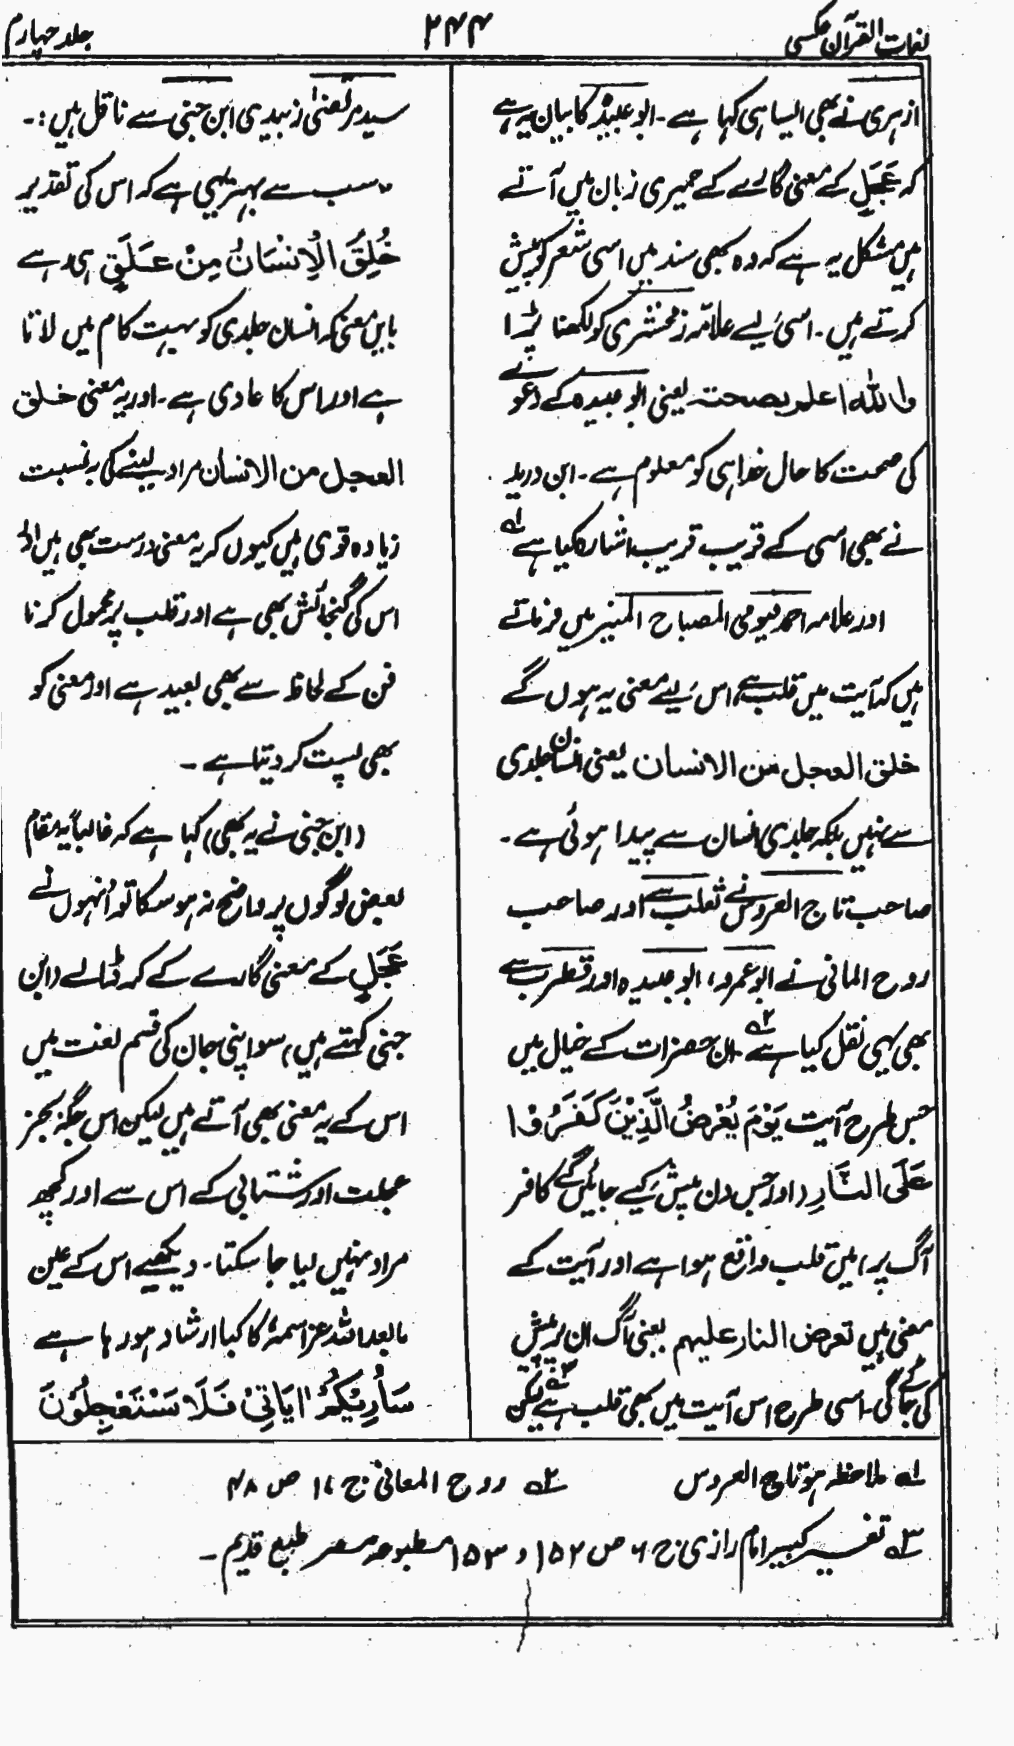 لغات القرآن عکسی
۲۴۴
جلد چہارم
ازہری نے بھی ایسا ہی کہا ہے۔ ابو عبیدؒ کا بیان یہ ہے
کہ عَجَلٍ کے معنی گارے کے حمیری زبان میں آتے
ہیں مشکل یہ ہے کہ وہ بھی سند میں اسی شعر کو پیش
کرتے ہیں۔ اسی لیے علامہ زمخشری کو لکھنا پڑا
واللہ اعلم بصحتہ یعنی ابو عبیدہ کے دعوے
کی صحت کا حال خدا ہی کو معلوم ہے۔ ابن درید
نے بھی اسی کے قریب قریب اشارہ کیا ہے ۱ے
اور علامہ احمد فیومی المصباح المنیر میں فرماتے
ہیں کہ آیت میں قلب ہے، اس لیے معنی یہ ہوں گے
خلق العجل من الانسان یعنی انسان جلدی
سے نہیں بلکہ جلدی انسان سے پیدا ہوئی ہے۔
صاحب تاج العروس نے ثعلب سے اور صاحب
روح المانی نے ابو عمرو، ابو عبیدہ اور قطرب سے
بھی یہی نقل کیا ہے ۲ے ان حضرات کے خیال میں
جس طرح آیت یَوْمَ یُعْرَضُ الَّذِیْنَ کَفَرُوْا
عَلَی النَّارِ (اور جس دن پیش کیے جائیں گے کافر
آگ پر) میں قلب واقع ہوا ہے اور آیت کے
معنی ہیں تعرض النار علیہم یعنی آگ ان پر پیش
کی جائے گی۔ اسی طرح اس آیت میں بھی قلب ہے ۳ے لیکن
سید مرتضیٰ زبیدی ابن جنی سے ناقل ہیں:۔
"سب سے بہتر یہی ہے کہ اس کی تقدیر
خُلِقَ الْاِنْسَانُ مِنْ عَـلَقٍ ہی ہے
بایں معنی کہ انسان جلدی کو بہت کام میں لاتا
ہے اور اس کا عادی ہے۔ اور یہ معنی خلق
العجل من الانسان مراد لینے کی بہ نسبت
زیادہ قوی ہیں کیوں کہ یہ معنی درست بھی ہیں اور
اس کی گنجائش بھی ہے اور قلب پر محمول کرنا
فن کے لحاظ سے بھی بعید ہے اور معنی کو
بھی پست کر دیتا ہے۔
(ابن جنی نے یہ بھی) کہا ہے کہ غالباً یہ مقام
بعض لوگوں پر واضح نہ ہو سکا تو اُنہوں نے
عَجَلٍ کے معنی گارے کے کر ڈالے (ابن
جنی کہتے ہیں) سو اپنی جان کی قسم لغت میں
اس کے یہ معنی بھی آتے ہیں لیکن اس جگہ بجز
عجلت اور شتابی کے اس سے اور کچھ
مراد نہیں لیا جا سکتا۔ دیکھیے اس کے عین
مابعد اللہ عز اسمہٗ کا کیا ارشاد ہو رہا ہے
سَاُرِیْکُمْ اٰیَاتِیْ فَـلَا تَسْتَعْجِلُوْنَ
۱ے ملاحظہ ہو تاج العروس ۲ے روح المعانی ج ۱۷ ص ۴۸
۳ے تفسیر کبیر امام رازی ج ۶ ص ۱۵۲ و ۱۵۳ مطبوعہ مصر طبع قدیم۔